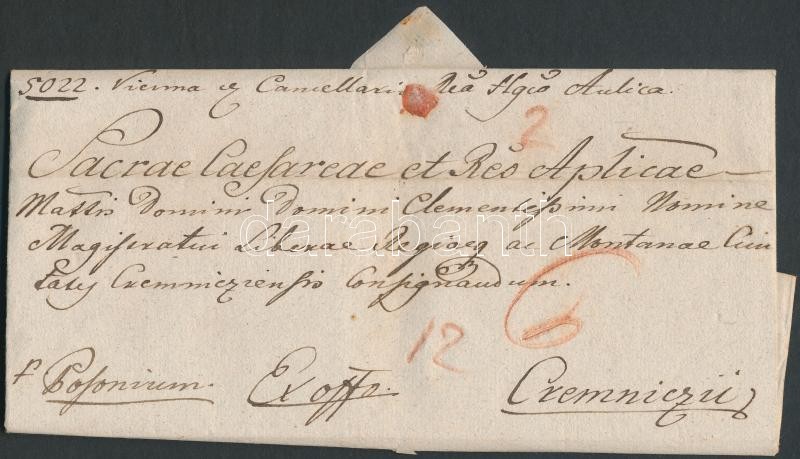 5022. Vienna ex Cancellaria Rea Hgco Aulica.
2
Sacrae Caesareae et Reo Aplicae
Mattis Domini Domini Clementissimi Nomine
Magistratui Liberae Regioeq ac Montanae Civi
tatis Cremnicziensis Consignandum.
darabanth
6
12
p Posonium. Ex offo. Cremniczii